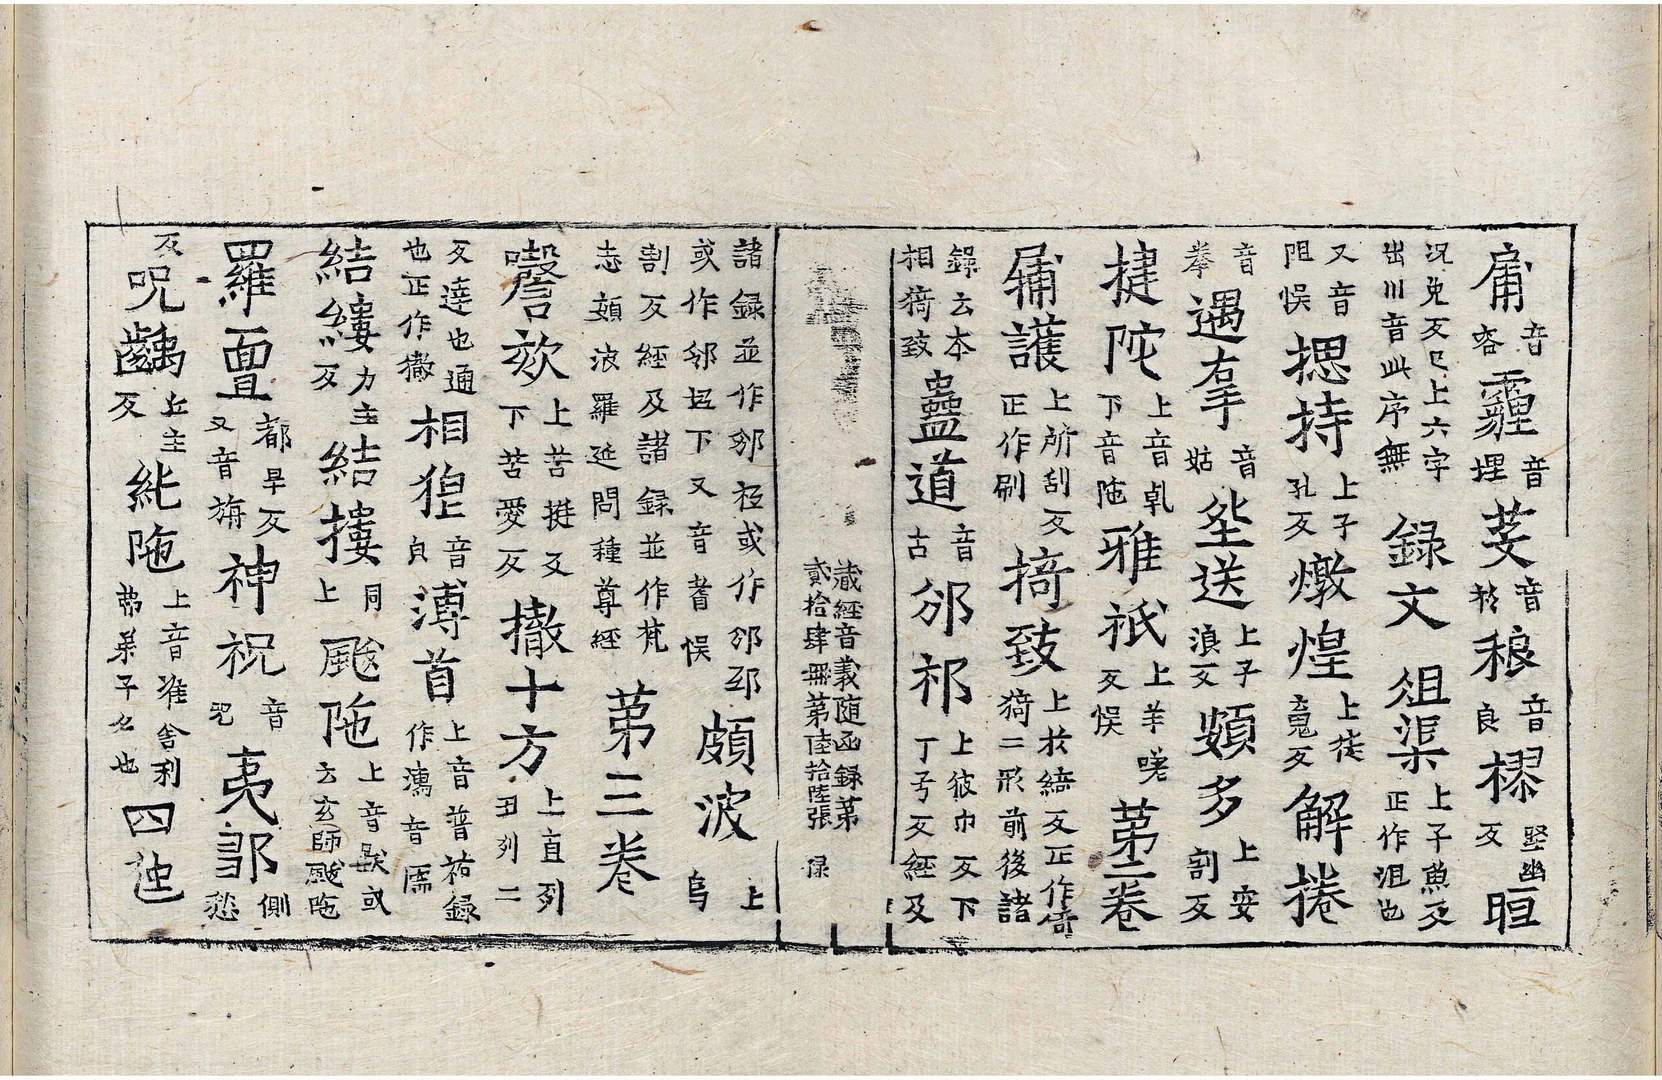 庸音容霾音埋荌音於稂音良樛坚幽反晅
况兔反已上六字出川音此序無錄文俎渠上子魚反正作沮也
又音阻悮揌持上子孔反燉煌上徒䰟反解捲
音拳遇㧱音姑坐送上子浪反頞多上安割反
揵陀上音乹下音陁雅祇上羊嗟反悮第二卷
䎔護上所刮反正作刷掎致上扵綺反正作倚猗二形前後諸
錄云本相猗致蠱道音古邠祁上彼巾反下丁兮反經及
藏經音義随函録苐
貳拾肆冊苐陸拾陸張 㝵
諸録並作邠袛或作邠邳或作邠坘下又音耆悮頗波上烏
割反經及諸録並作梵志頞波羅延問種尊經第三卷
謦欬上苦挺反下苦愛反撤十方上直列丑列二
反達也通也正作撤相狴音貞溥首上音普祐録作濡音儒
結縷力主反結摟同上颰陁上音䟦或云玄師颰陁
羅亶都旱反又音旃神祝音呪夷䣋側愁
反呪齲丘主反紪陁上音准舍利弗弟子名也四迆